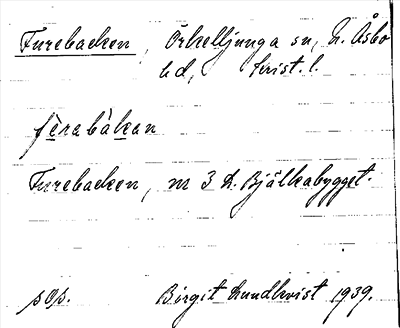 Furebacken, Örkelljunga sn, N. Åsbo
hd, Krist. l.
fèrabàkan
Furebacken, m 3 k. Bjälkabygget.
sOp. Birgit Lundkvist 1939.